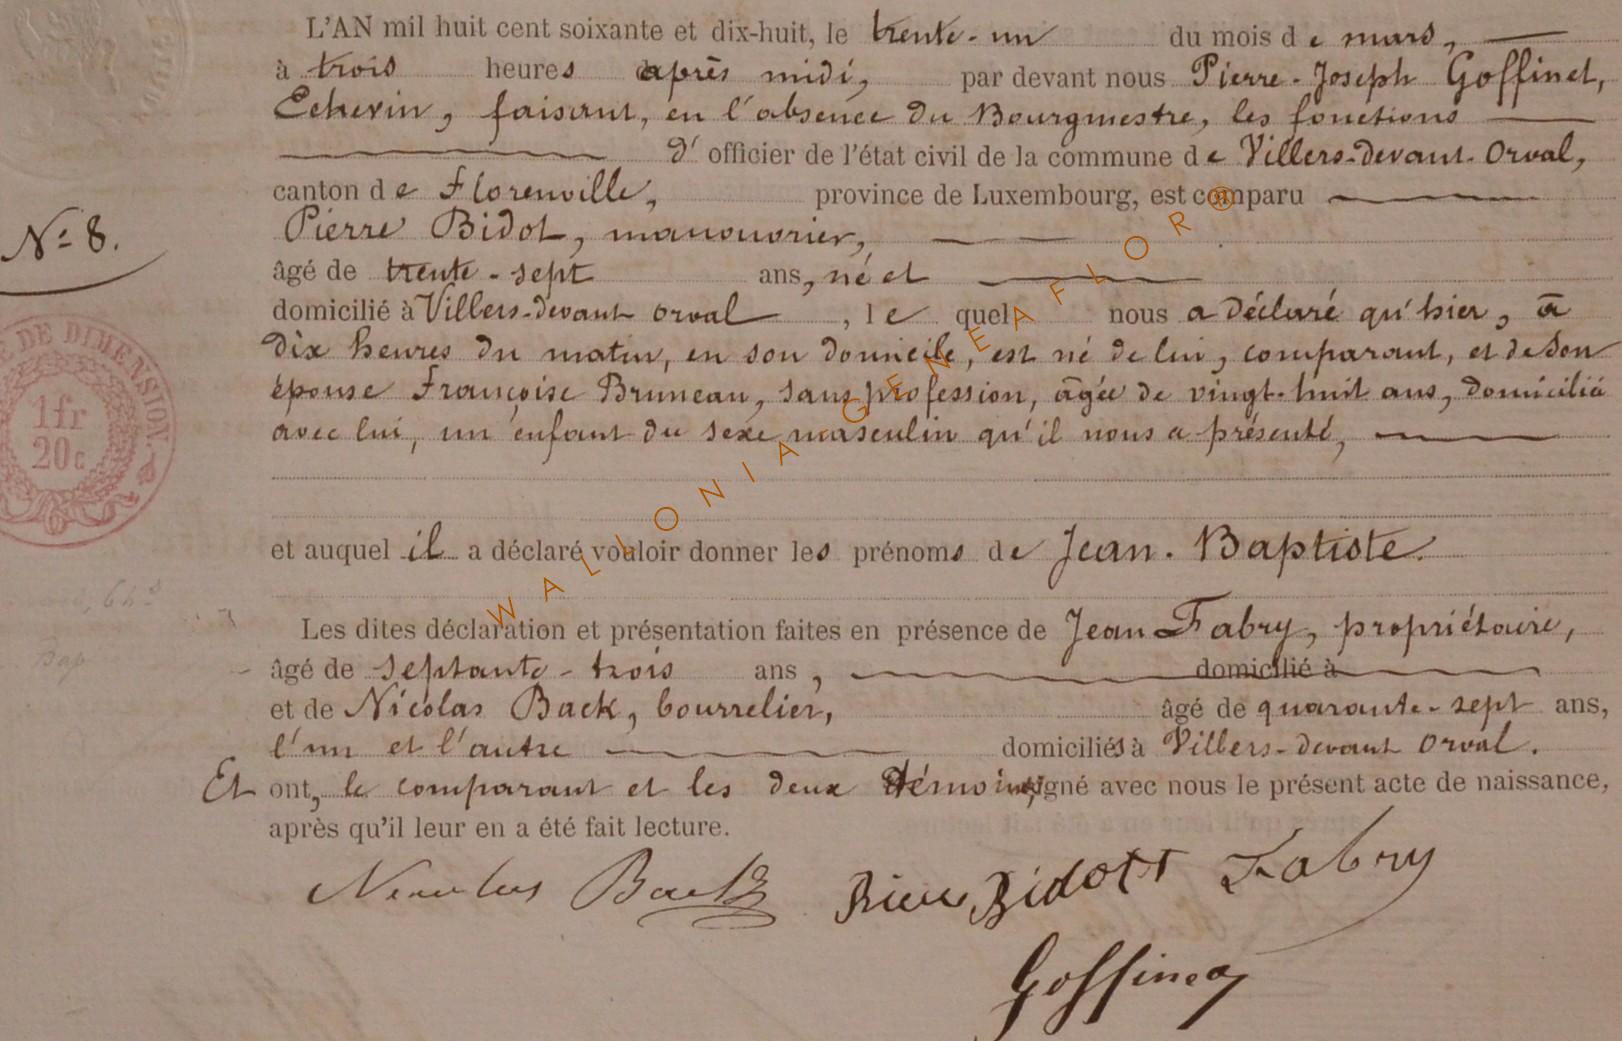 L'AN mil huit cent soixante et dix-huit, le trente-un du mois de mars,
à trois heures après midi, par devant nous Pierre-Joseph Goffinet,
Echevin, faisant, en l'absence du Bourgmestre, les fonctions
d' officier de l'état civil de la commune de Villers-devant-Orval,
canton de Florenville, province de Luxembourg, est comparu
Pierre Bidot, manouvrier,
N° 8.
âgé de trente-sept ans, né et
domicilié à Villers-devant Orval, lequel nous a déclaré qu'hier, à
dix heures du matin, en son domicile, est né de lui, comparant, et de son
épouse Françoise Bruneau, sans profession, âgée de vingt-huit ans, domiciliée
avec lui, un enfant du sexe masculin qu'il nous a présenté,
E DE DIMENSION.
1fr
20c
et auquel il a déclaré vouloir donner les prénoms de Jean-Baptiste.
Les dites déclaration et présentation faites en présence de Jean Fabry, propriétaire,
âgé de septante-trois ans, domicilié à
et de Nicolas Back, bourrelier, âgé de quarante-sept ans,
l'un et l'autre domiciliés à Villers-devant Orval.
Et ont, le comparant et les deux témoins, signé avec nous le présent acte de naissance,
après qu'il leur en a été fait lecture.
Nicolas Back Pierre Bidott Fabry
Goffinet
WALLONIA-GENEAFLOR®